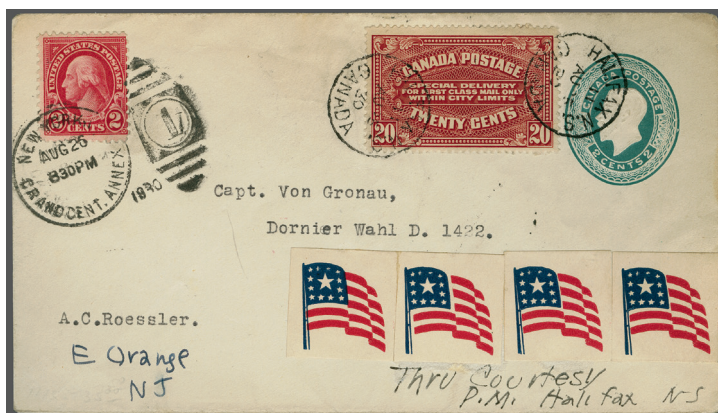 UNITED STATES POSTAGE
2 CENTS 2
NEW YORK
AUG 26
830PM
GRAND CENT. ANNEX
1
1930
CANADA POSTAGE
SPECIAL DELIVERY
FOR FIRST CLASS MAIL ONLY
WITHIN CITY LIMITS
TWENTY CENTS
20 20
CANADA
HALIFAX N.S.
CANADA POSTAGE
2 CENTS 2
Capt. Von Gronau,
Dornier Wahl D. 1422.
A.C.Roessler.
E Orange
NJ
Thru Courtesy
P.M. Halifax N-S